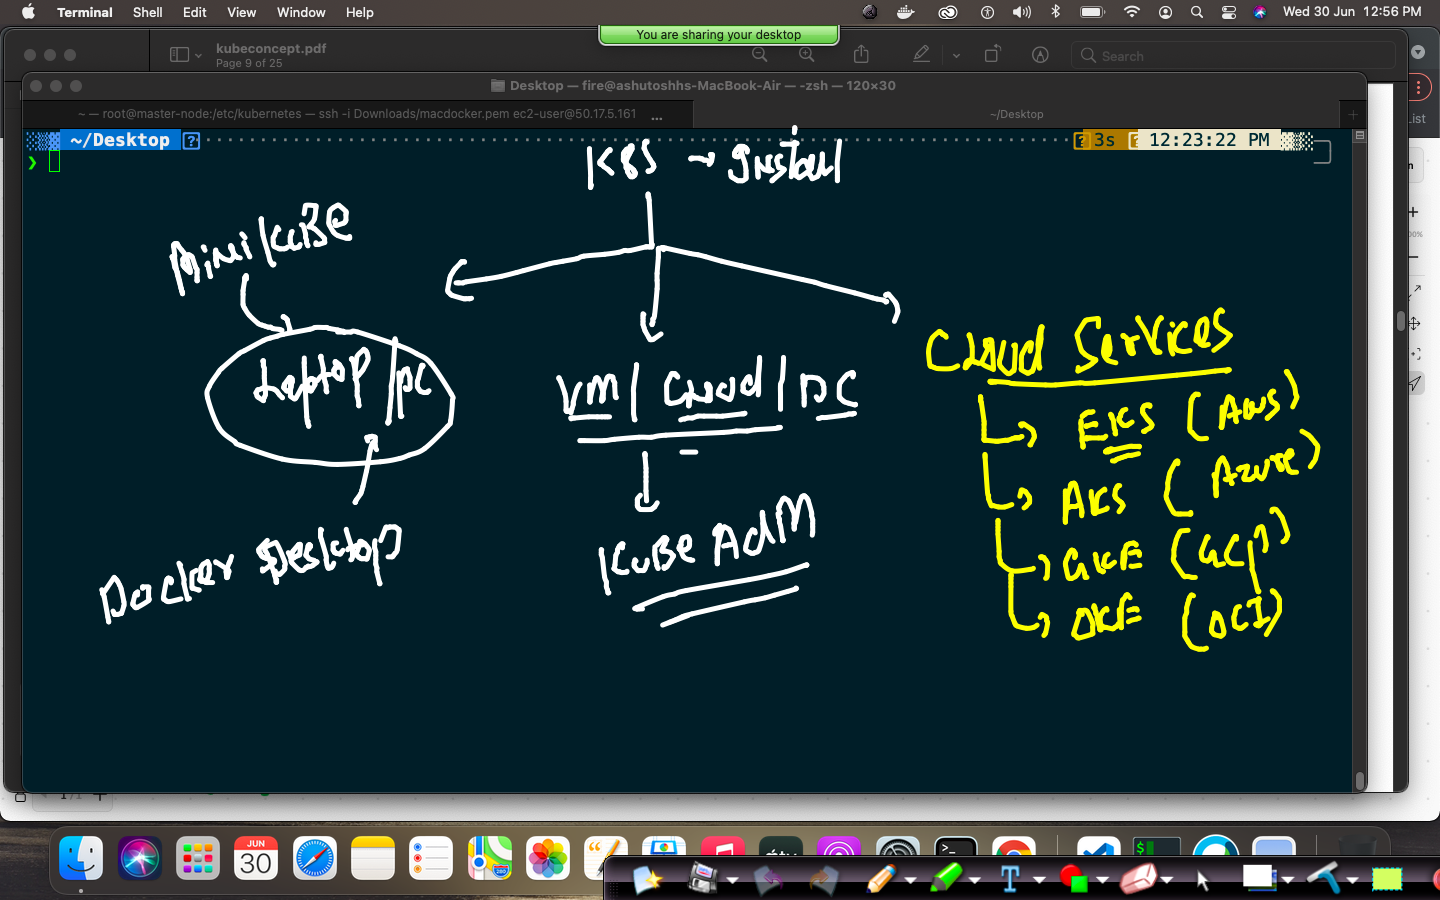 Terminal Shell Edit View Window Help Wed 30 Jun 12:56 PM
You are sharing your desktop
kubeconcept.pdf
Page 9 of 25
Search
Desktop — fire@ashutoshhs-MacBook-Air — -zsh — 120×30
~ — root@master-node:/etc/kubernetes — ssh -i Downloads/macdocker.pem ec2-user@50.17.5.161 ...
~/Desktop
~/Desktop 3s 12:23:22 PM
❯
K8S → Install
MiniKuBe
Laptop/pc
Docker Desktop
VM / Cloud / DC
KuBe AdM
Cloud Services
EKS (Aws)
AKS (Azure)
GKE (GCP)
OKE (OCI)
JUN
30